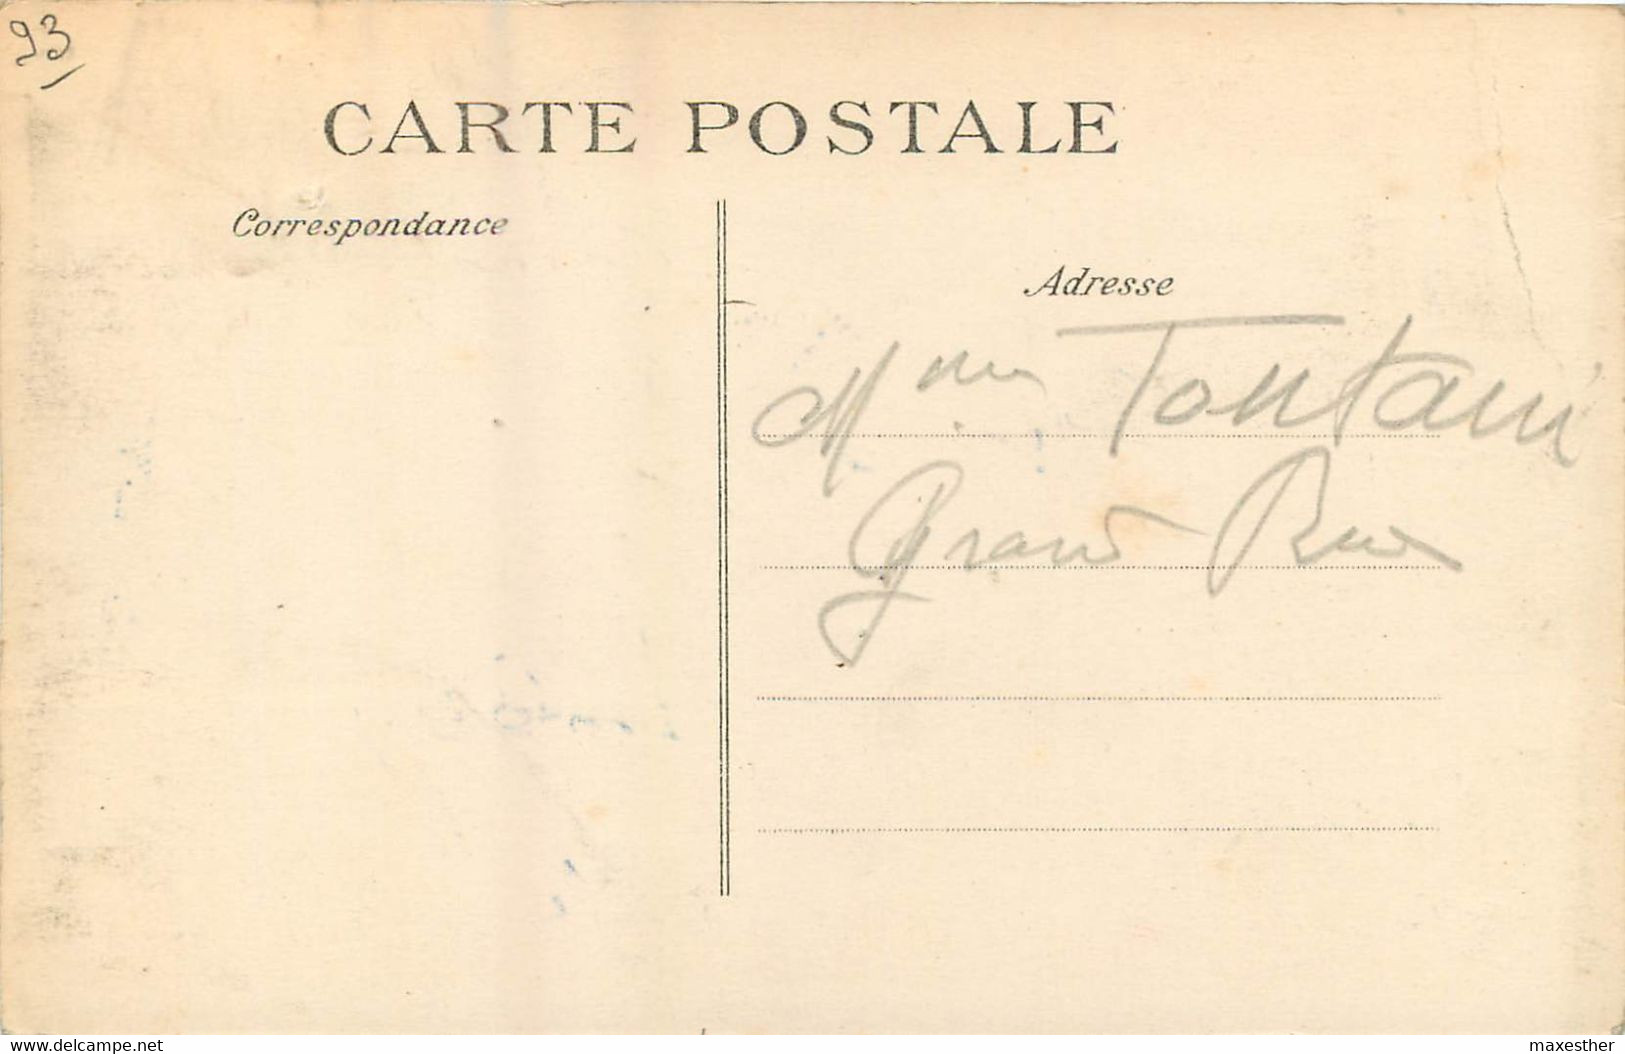 93
CARTE POSTALE
Correspondance
Adresse
Mme Tontani
Grand Rue
www.delcampe.net
maxesther